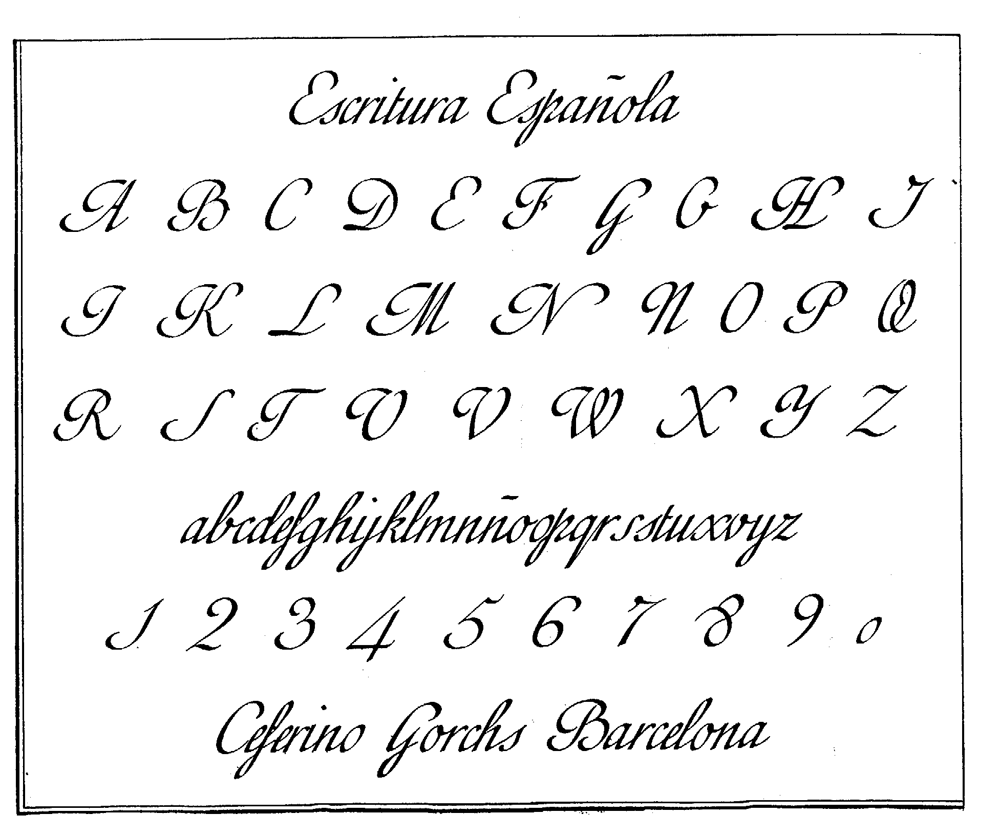 Escritura Española
A B C D E F G G H I
I K L M N N O P Q
R S T U V W X Y Z
abcdefghijklmnñopqrsstuxvyz
1 2 3 4 5 6 7 8 9 0
Ceferino Gorchs Barcelona